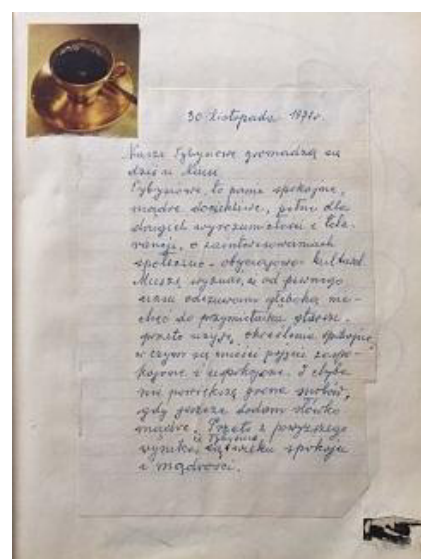 30 listopada 1971r.
Nasze Sybynowe gromadzą się
dziś u Niuu
Sybynowe, to panie spokojne,
mądre dociekliwe, pełne dla
drugich wyrozumiałości i tole-
rancji, o zainteresowaniach
społeczno-obyczajowo-kultural.
Muszę wyznać, że od pewnego
czasu odczuwam głęboką nie-
chęć do przymiotnika starsze,
przeto użyję określenia spokojne
w czym się mieści pojęcie zaspo-
kojone i uspokojone. I chyba
nie powiększę grona snobów,
gdy jeszcze dodam słówko
mądre. Przeto z powyższego
wynika, iż są wieku spokoju
i mądrości.